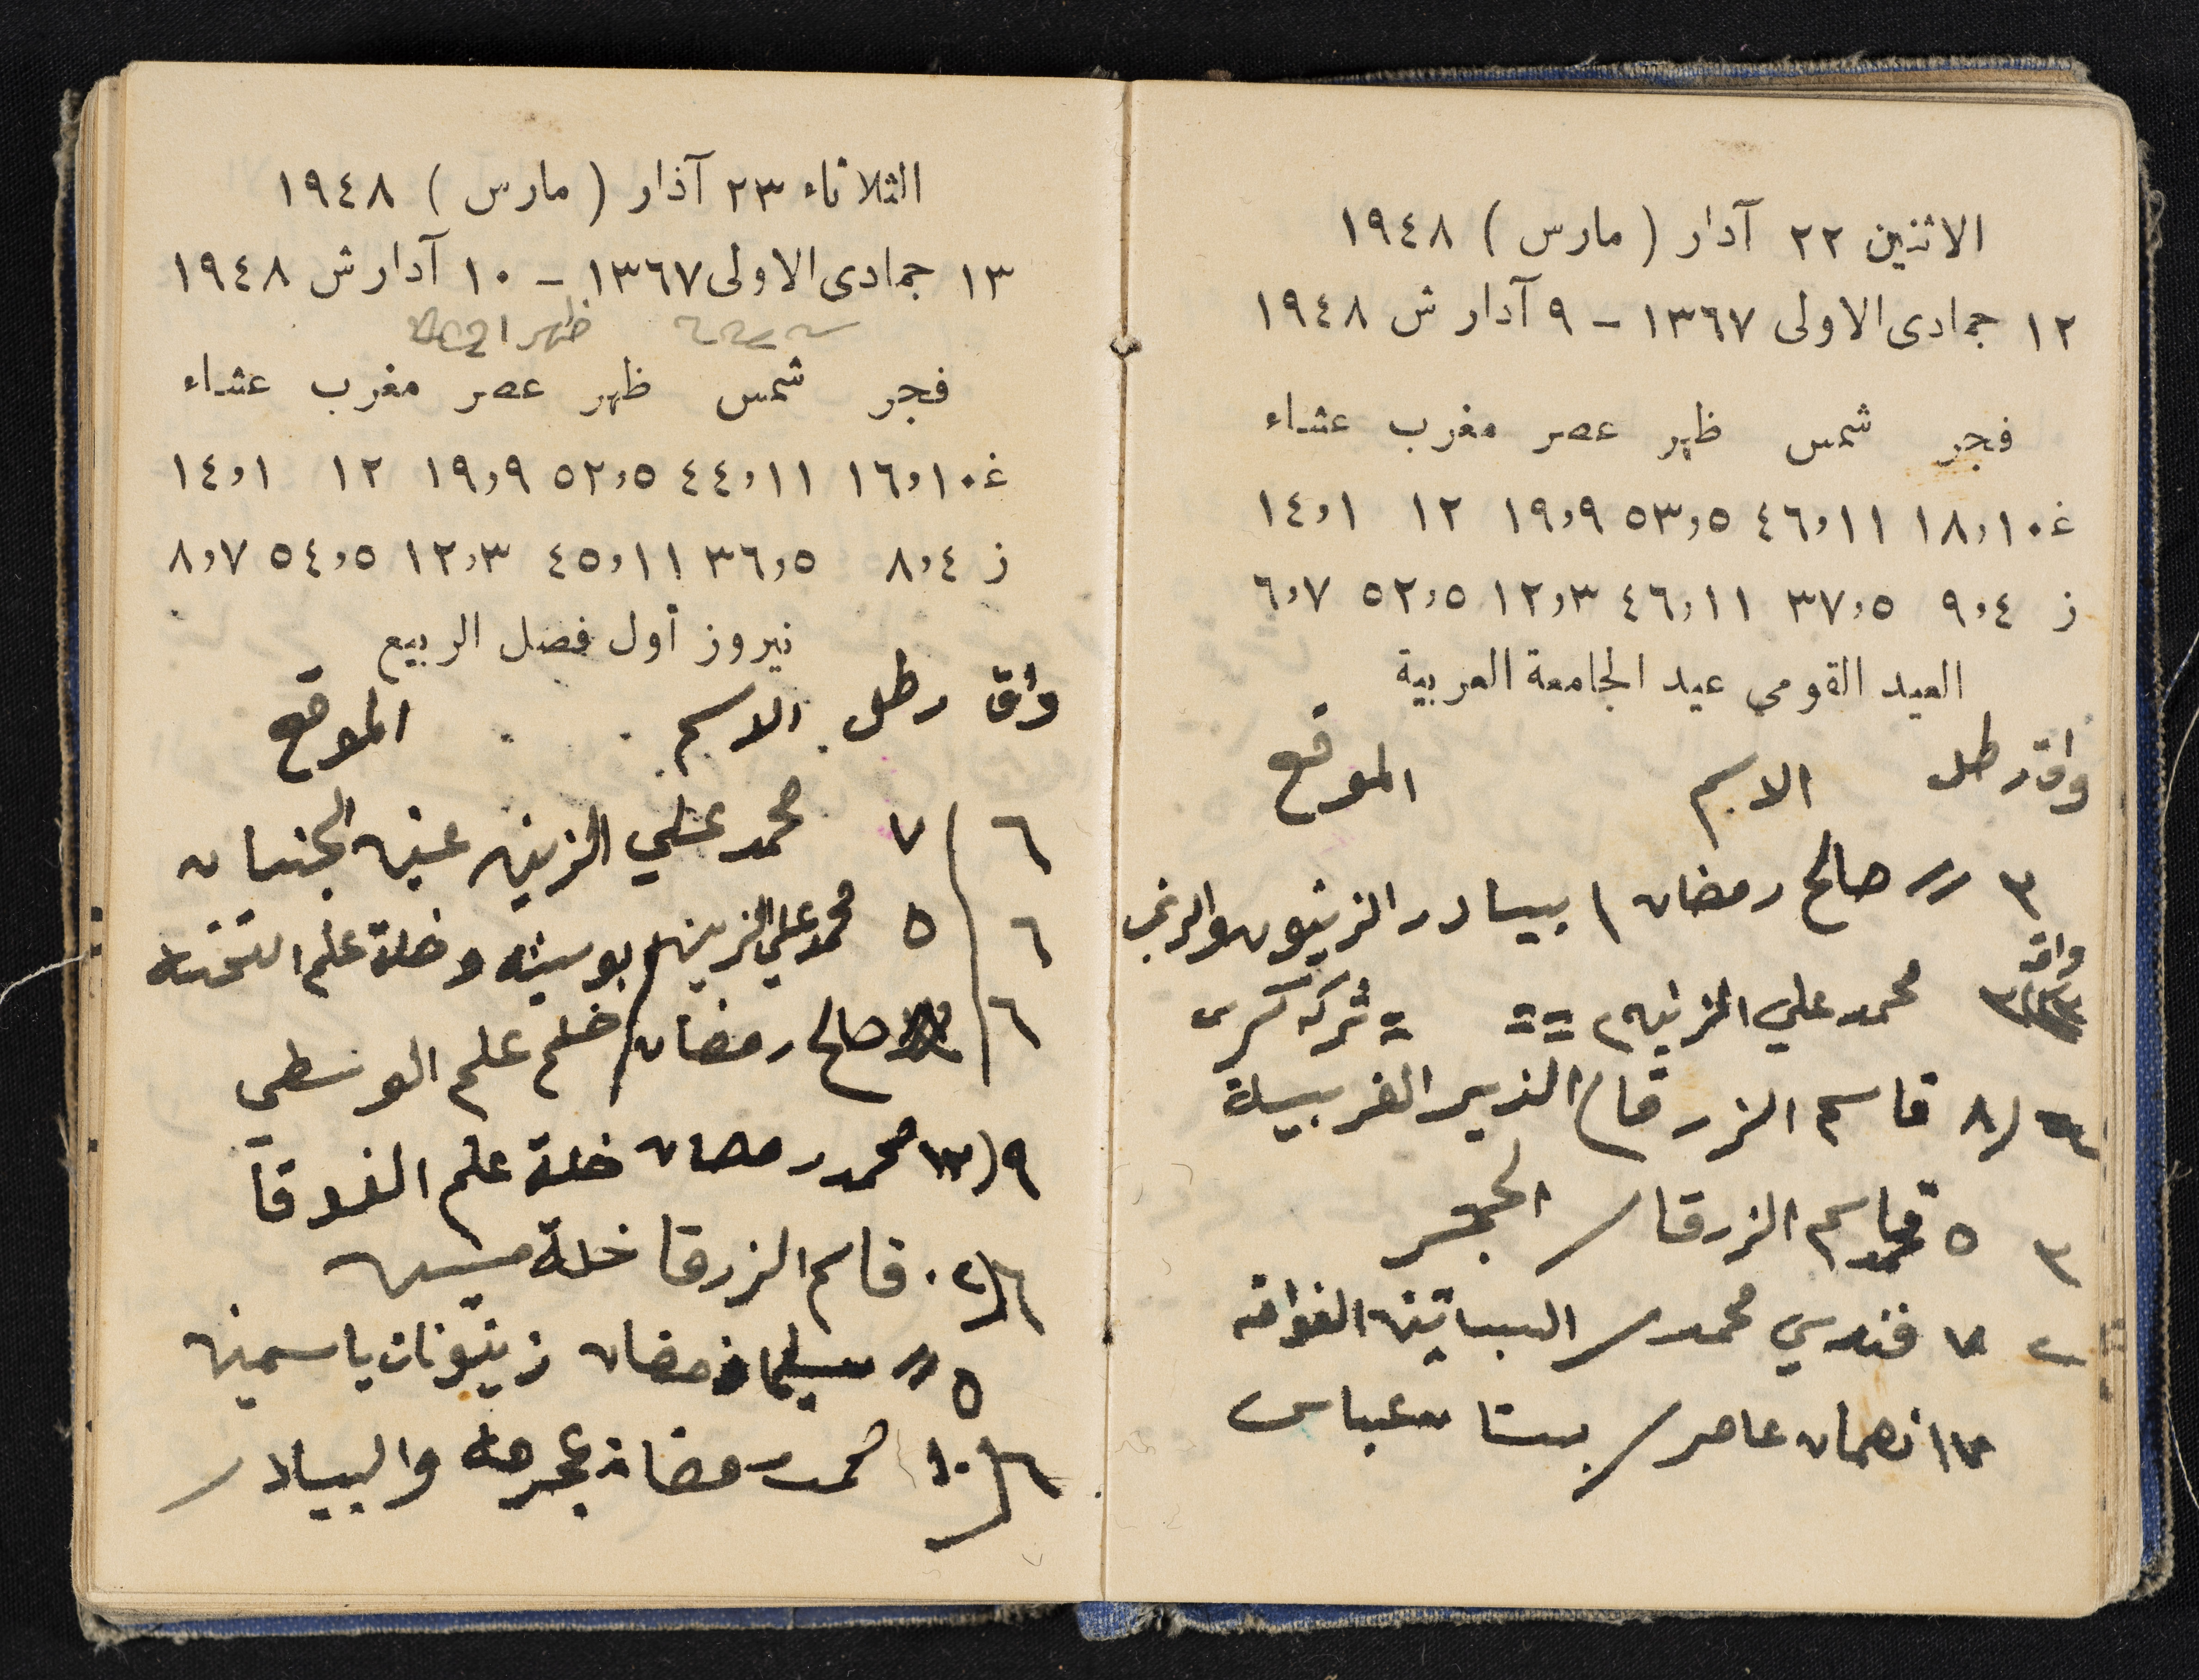 الاثنين ٢٢ آدار ( مارس ) ١٩٤٨
١٢ جمادى الاولى ١٣٦٧ – ٩ آدار ش ١٩٤٨
فجر شمس ظهر عصر مغرب عشاء
غ ١٨،١٠ ٤٦،١١ ٥٣،٥ ١٩،٩ ١٢ ١٤،١
ز ٩،٤ ٣٧،٥ ٤٦،١١ ١٢،٣ ٥٢،٥ ٦،٧
العيد القومي عيد الجامعة العربية
واق رطل الاسم الموقع
٣ // صالح رمضان / بيادر الزيتون
واق
محمد علي الزين = = = شركة
٨ قاسم الزرقا / الدير الغربية
٣ ٥ قاسم الزرقا / الحجر
٢ ٧ فندي محمد / البساتين الفواقه
نعمان عامر / بستا عباس
الثلاثاء ٢٣ آذار ( مارس ) ١٩٤٨
١٣ جمادى الاولى ١٣٦٧ – ١٠ آدار ش ١٩٤٨
ظهر
فجر شمس ظهر عصر مغرب عشاء
غ ١٦،١٠ ٤٤،١١ ٥٢،٥ ١٩،٩ ١٢ ١٤،١
ز ٨،٤ ٣٦،٥ ٤٥،١١ ١٢،٣ ٥٤،٥ ٨،٧
نيروز أول فصل الربيع
واق رطل الاسم الموقع
٦ / ٧ محمد علي الزين عين الجنان
٦ / ٥ محمد علي الزين / وخلة علم التحته
٦ / صالح رمضان / خلة علم الوسطى
٩ / محمد رمضان خلة علم الفوقا
٦ / ٢٠ قاسم الزرقا خلة
٥ // سليمان رمضان زيتونات ياسمين
٦ / ١٠ محمد رمضان والبيادر